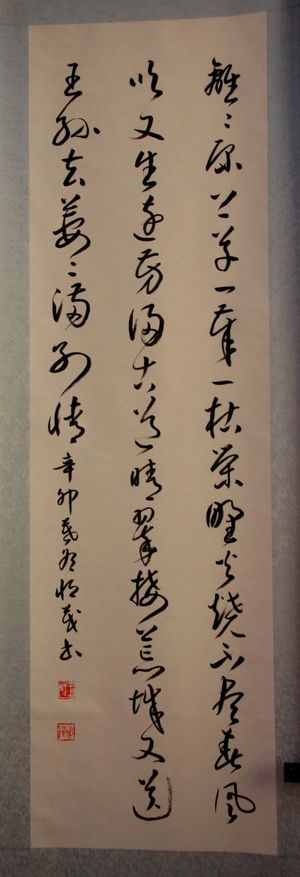 離〻原上草一歲一枯榮野火燒不盡春風
吹又生遠芳侵古道晴翠接荒城又送
王孫去萋〻滿別情 辛卯書